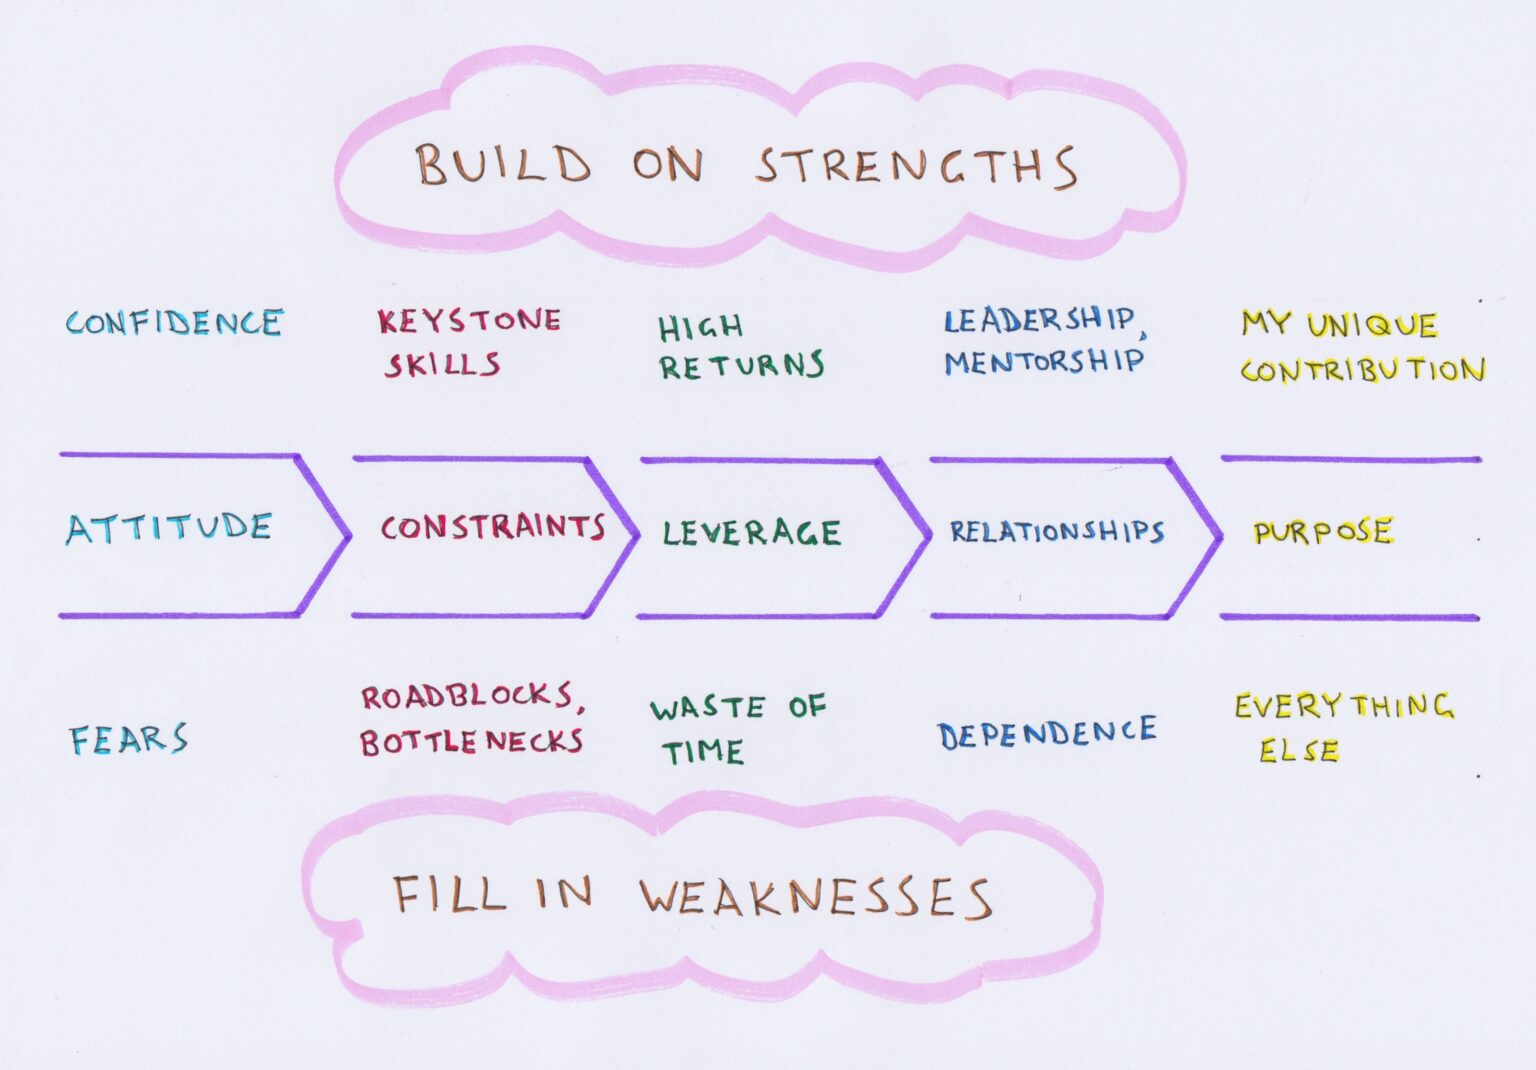 BUILD ON STRENGTHS
CONFIDENCE
KEYSTONE
SKILLS
HIGH
RETURNS
LEADERSHIP,
MENTORSHIP
MY UNIQUE
CONTRIBUTION
ATTITUDE
CONSTRAINTS
LEVERAGE
RELATIONSHIPS
PURPOSE
FEARS
ROADBLOCKS,
BOTTLENECKS
WASTE OF
TIME
DEPENDENCE
EVERYTHING
ELSE
FILL IN WEAKNESSES